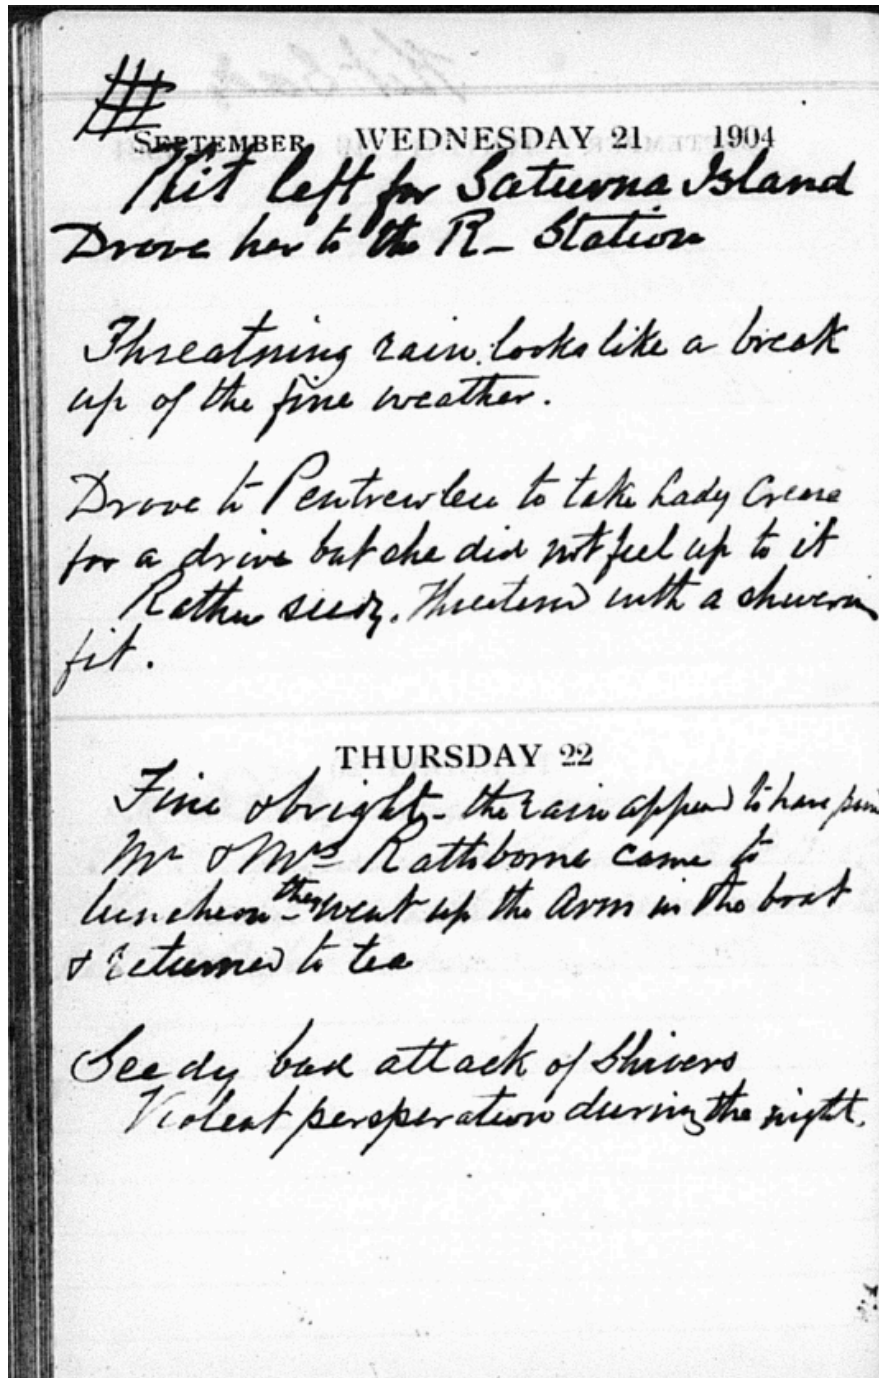 SEPTEMBER WEDNESDAY 21 1904
Kit left for Saturna Island
Drove her to the R- Station
Threatning rain. looks like a break
up of the fine weather.
Drove to Pentrewlew to take Lady Crease
for a drive but she did not feel up to it
Rather seedy. threatened with a shivering
fit.
THURSDAY 22
Fine & bright - the rain appears to have
Mr & Mrs Rathborne came to
luncheon - then went up the Arm in the boat
& returned to tea
Seedy bad attack of Shivers
Violent persperation during the night.